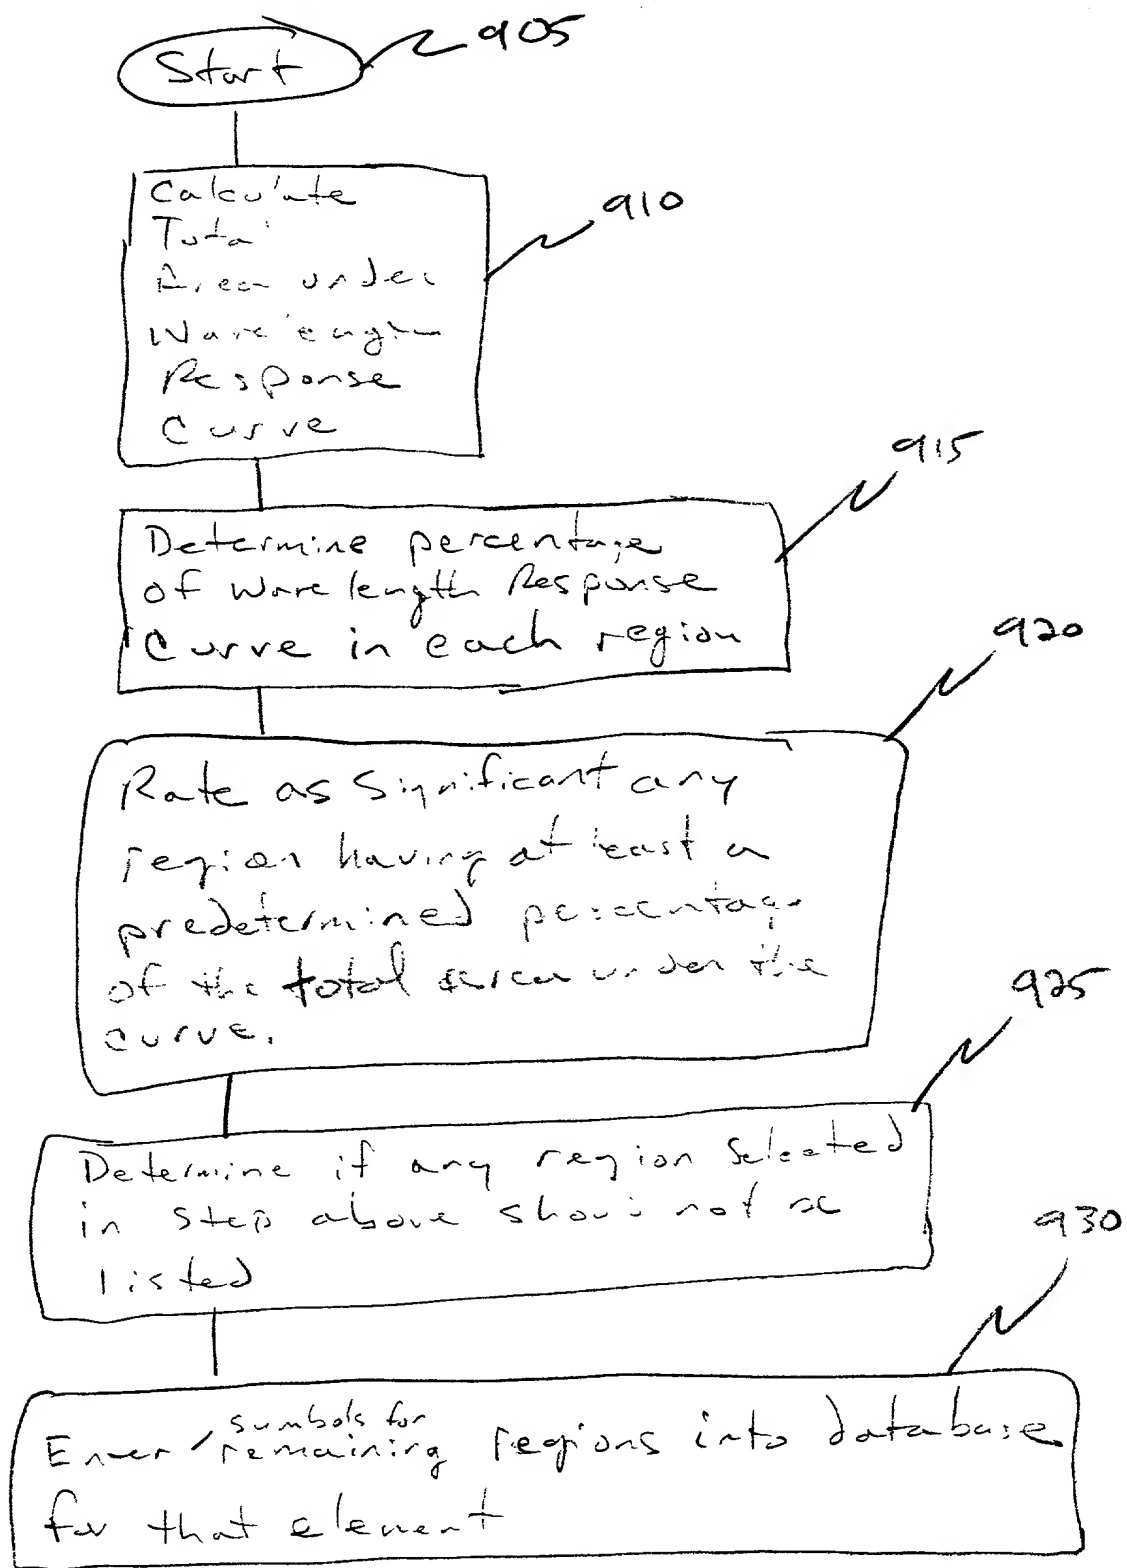 Start
905
Calculate
Total
Area under
Wavelength
Response
Curve
910
Determine percentage
of Wavelength Response
Curve in each region
915
Rate as Significant any
region having at least a
predetermined percentage
of the total area under the
curve.
920
Determine if any region Selected
in step above should not be
listed
925
symbols for
Enter / remaining regions into database
for that element
930